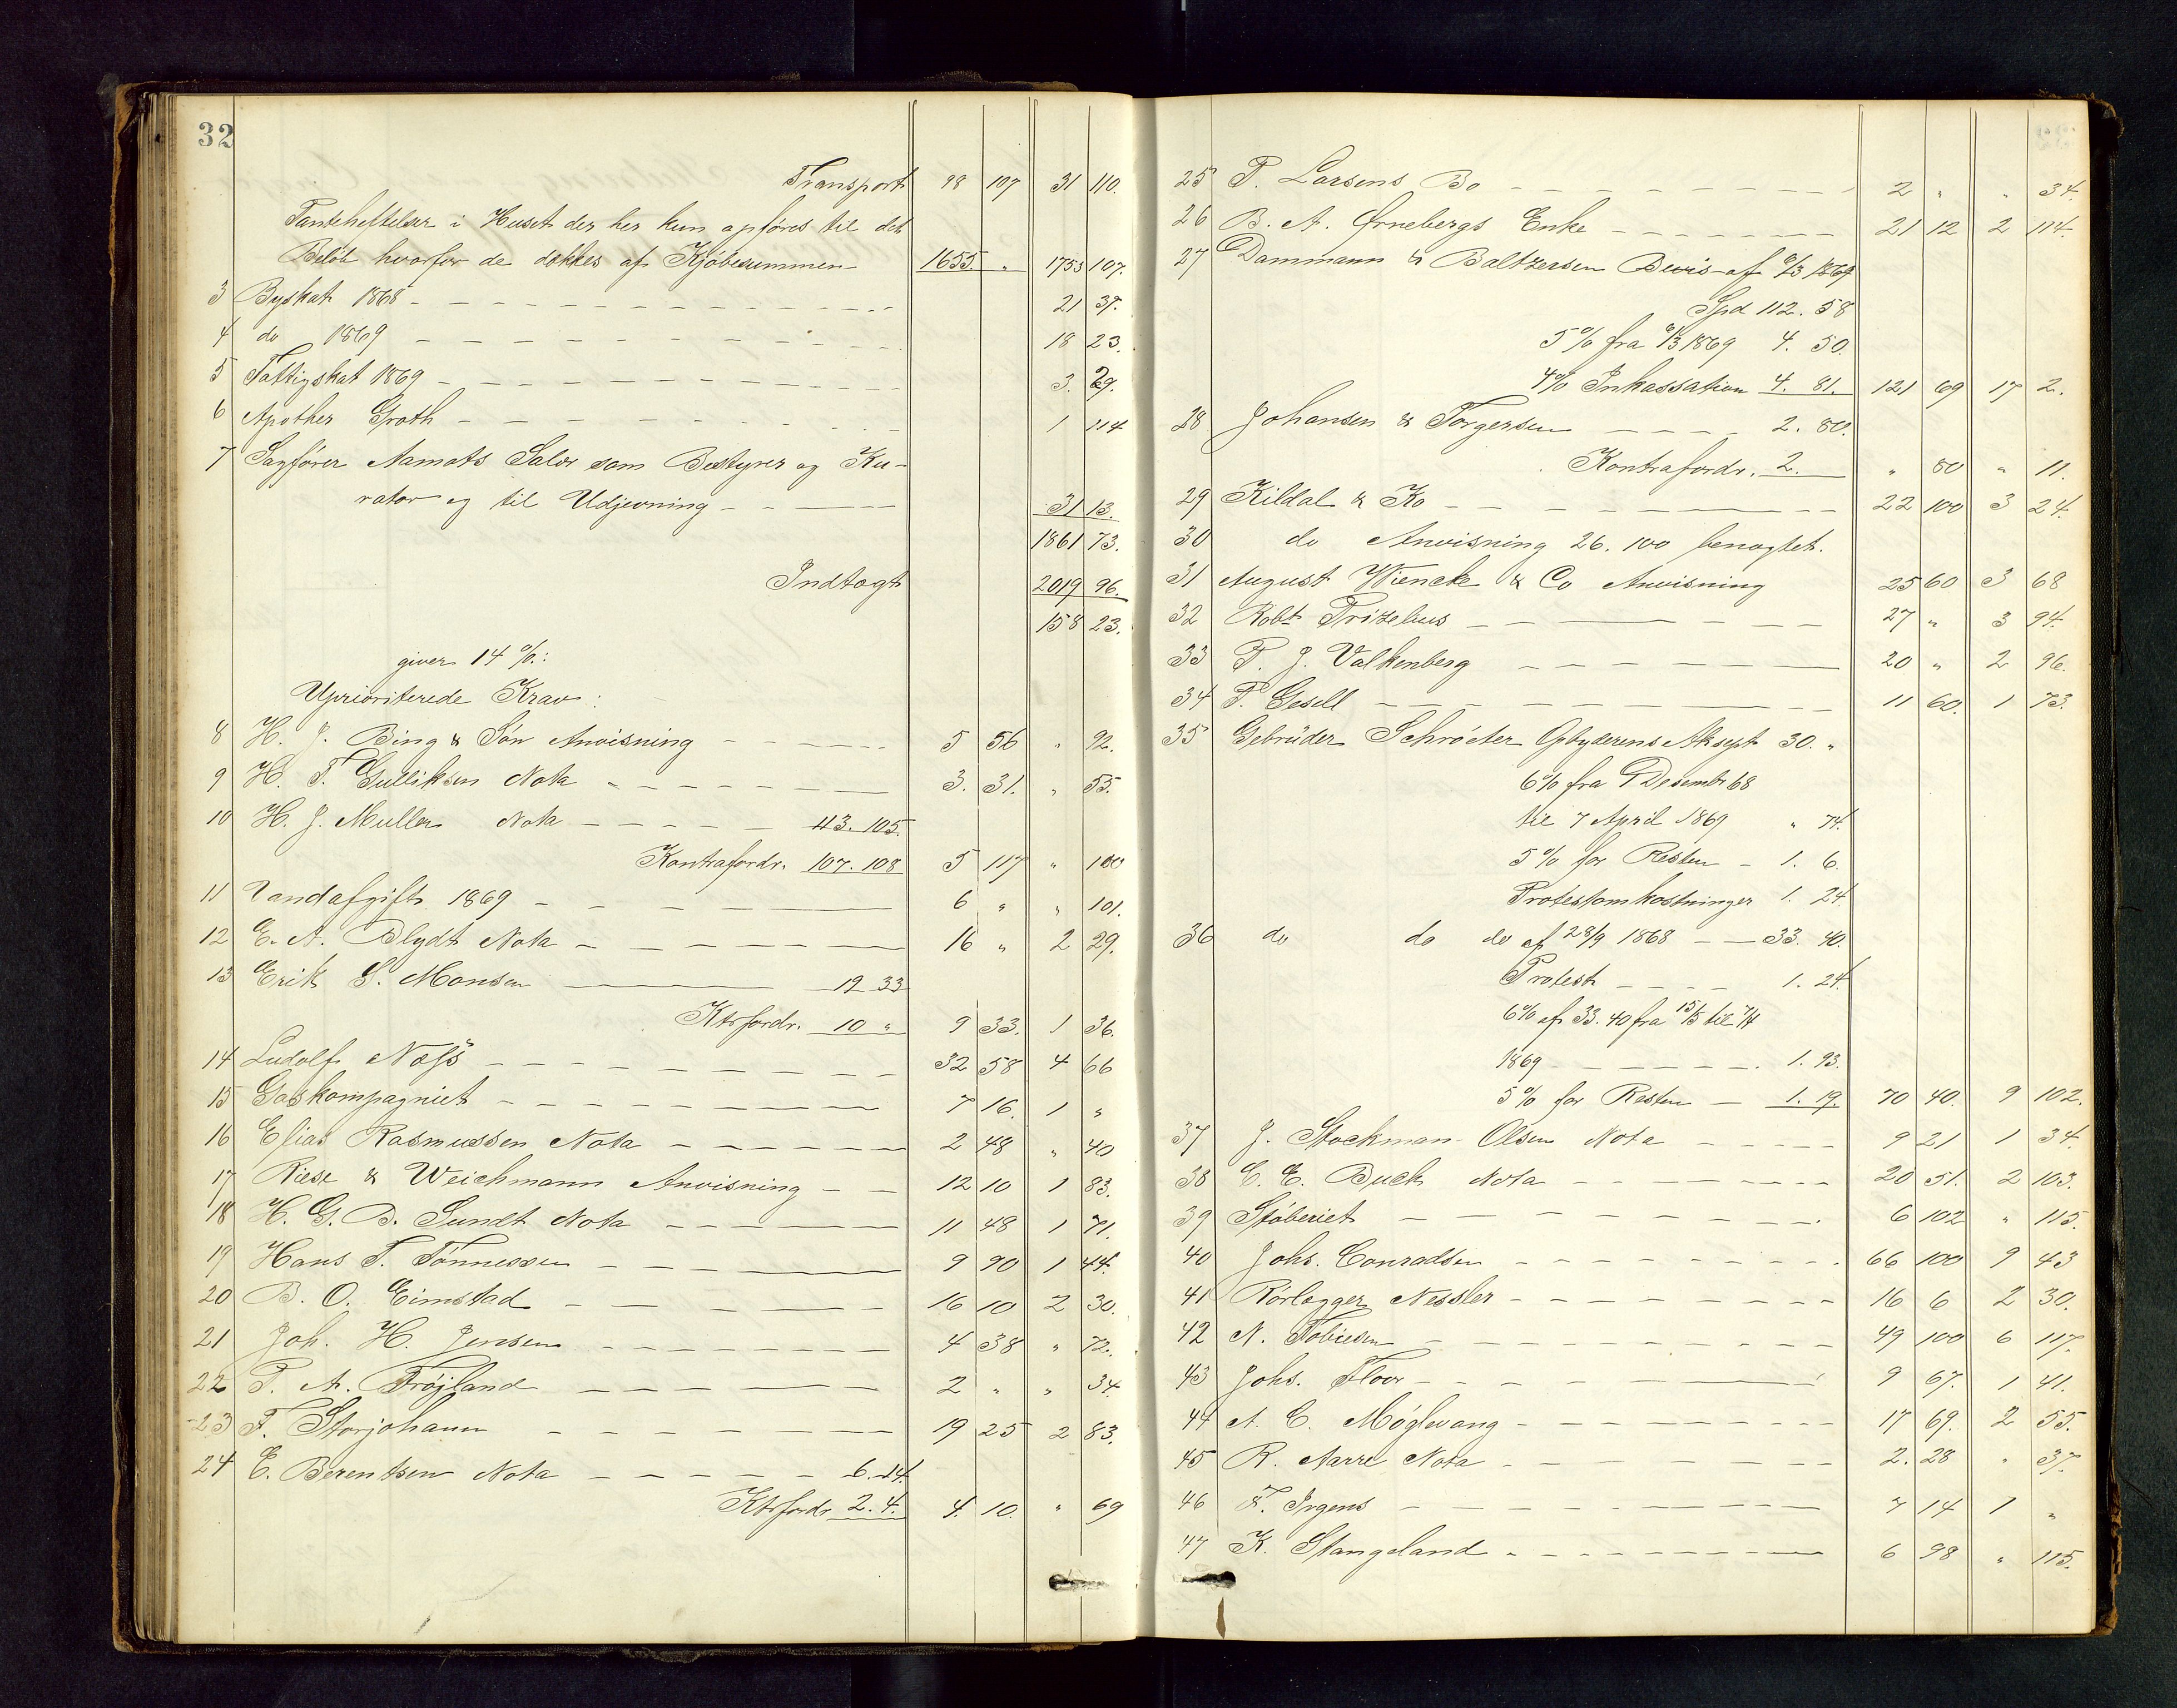 32
Transport 98 107 31 110.
Panteheftelser i Huset der her kun opføres til det
Beløb hvorfor de dækkes af Kjøbesummen 1655. " 1753 107.
3 Byskat 1868 - - - 21 37.
4 do 1869 - - - 18 23.
5 Fattigskat 1869 - - - 3. 29.
6 Apother Groth - - - 1 114
7 Sagfører Aamots Salær som Bestyrer og Ku-
rator og til Udjevning - - - 31 13.
1861 73.
Indtægt 2019 96.
158 23.
giver 14 %:
Uprioriterede Krav:
8 H. J. Bing & Søn Anvisning - - - 5 56 " 92.
9 H. T. Gulliksen Nota - - - 3. 31. " 55.
10 H. J. Muller Nota - - - 113. 105.
Kontrafordr. 107. 108 5 117 " 100
11 Vandafgift 1869 - - - 6 " " 101.
12 E. A. Blydt Nota - - - 16 " 2 29.
13 Erik S. Monsen - - - 19 33
Ktrfordr. 10 " 9 33. 1 36.
14 Ludolf Næss - - - 32 58 4 66
15 Gaskompagniet - - - 7 16. 1 "
16 Elias Rasmussen Nota - - - 2 48 " 40
17 Riese & Weichmann Anvisning - - 12 10 1 83.
18 H. G. B. Sundt Nota - - - 11 48 1 71.
19 Hans T. Tønnessen - - - 9 90 1 44.
20 B. O. Eimstad - - - 16 10 2 30.
21 Joh. H. Jensen - - - 4 38 " 72.
22 P. A. Frøjland - - - 2 " " 34.
23 F. Storjohann - - - 19 25 2 83.
24 E. Berentsen Nota - - - 6. 14.
Ktrfordr. 2. 4. 4. 10. " 69
25 P. Larsens Bo - - - 2 " " 34.
26 B. A. Ørnebergs Enke - - - 21 12 2 114.
27 Dammann & Baltzersen Bevis af 6/3 1869
Spd 112. 58
5 % fra 6/3 1869 4. 50.
4 % Inkassation 4. 81. 121 69 17 2.
28 Johansen & Torgersen - - - 2. 80.
Kontrafordr. 2. " 80 " 11.
29 Kildal & Ko - - - 22 100 3 24.
30 do Anvisning 26. 100 benægtet.
31 August Wiencke & Co Anvisning 25 60 3 68
32 Robt Frizelius - - - 27 " 3 94.
33 P. J. Valkenberg - - - 20 " 2 96.
34 P. Gesell - - - 11 60. 1 73.
35 Gebrüder Schröeter Opbyderens Aksept 30. "
6 % fra 9 Desembr 68
til 7 April 1869 " 74.
5 % for Resten - 1. 6.
Protestomkostninger 1. 24.
36 do do do af 28/9 1868 - - 33. 40.
Protest - - - 1. 24.
6 % af 33. 40 fra 15/5 til 7/4
1869 - - - 1. 93.
5 % for Resten - 1. 19. 70 40. 9 102.
37 J. Stockman Olsen Nota - - - 9 21 1 34.
38 C. E. Buch Nota - - - 20 51. 2 103.
39 Støberiet - - - 6 102 " 115.
40 Johs. Conradsen - - - 66 100 9 43
41 Rørlægger Nessler - - - 16 6 2 30.
42 N. Tobiesen - - - 49 100 6 117.
43 Johs. Floor - - - 9 67. 1 41.
44 A. C. Møglevang - - - 17 69. 2 55.
45 R. Aarre Nota - - - 2. 28 " 37.
46 F. Irgens - - - 7 14 1 "
47 K. Stangeland - - - 6 98 " 115.